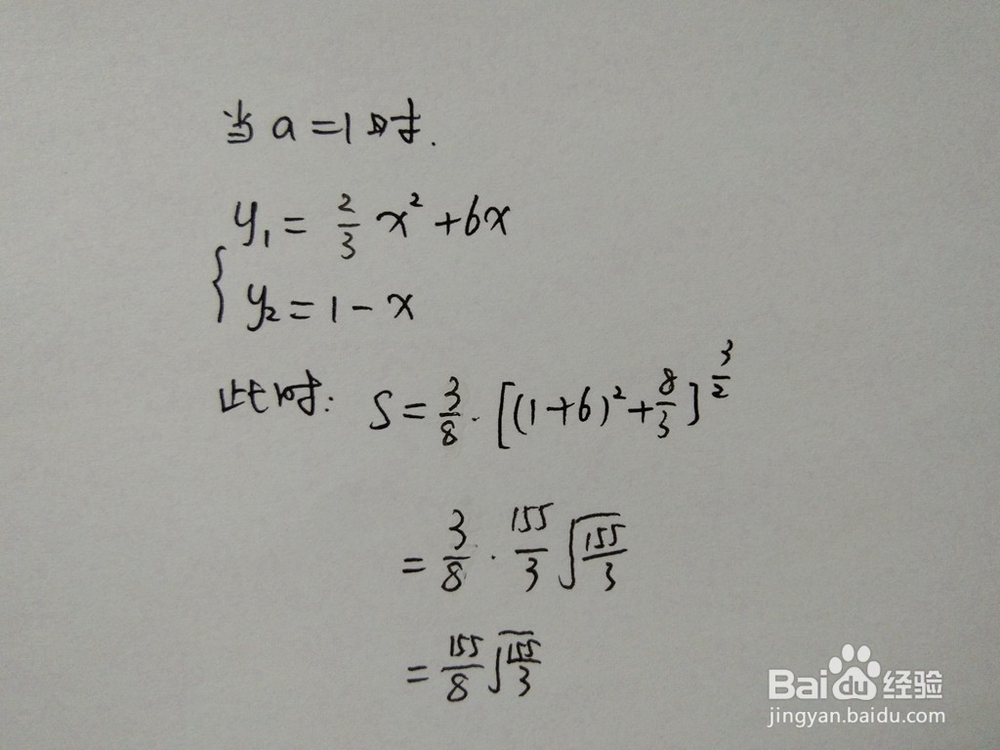 当 a=1时.
y₁ = 2/3 x² + 6x
{ y₂ = 1 - x
此时: S = 3/8 · [(1+6)² + 8/3]^(3/2)
= 3/8 · 155/3 √(155/3)
= 155/8 √(155/3)
Baidu经验
jingyan.baidu.com